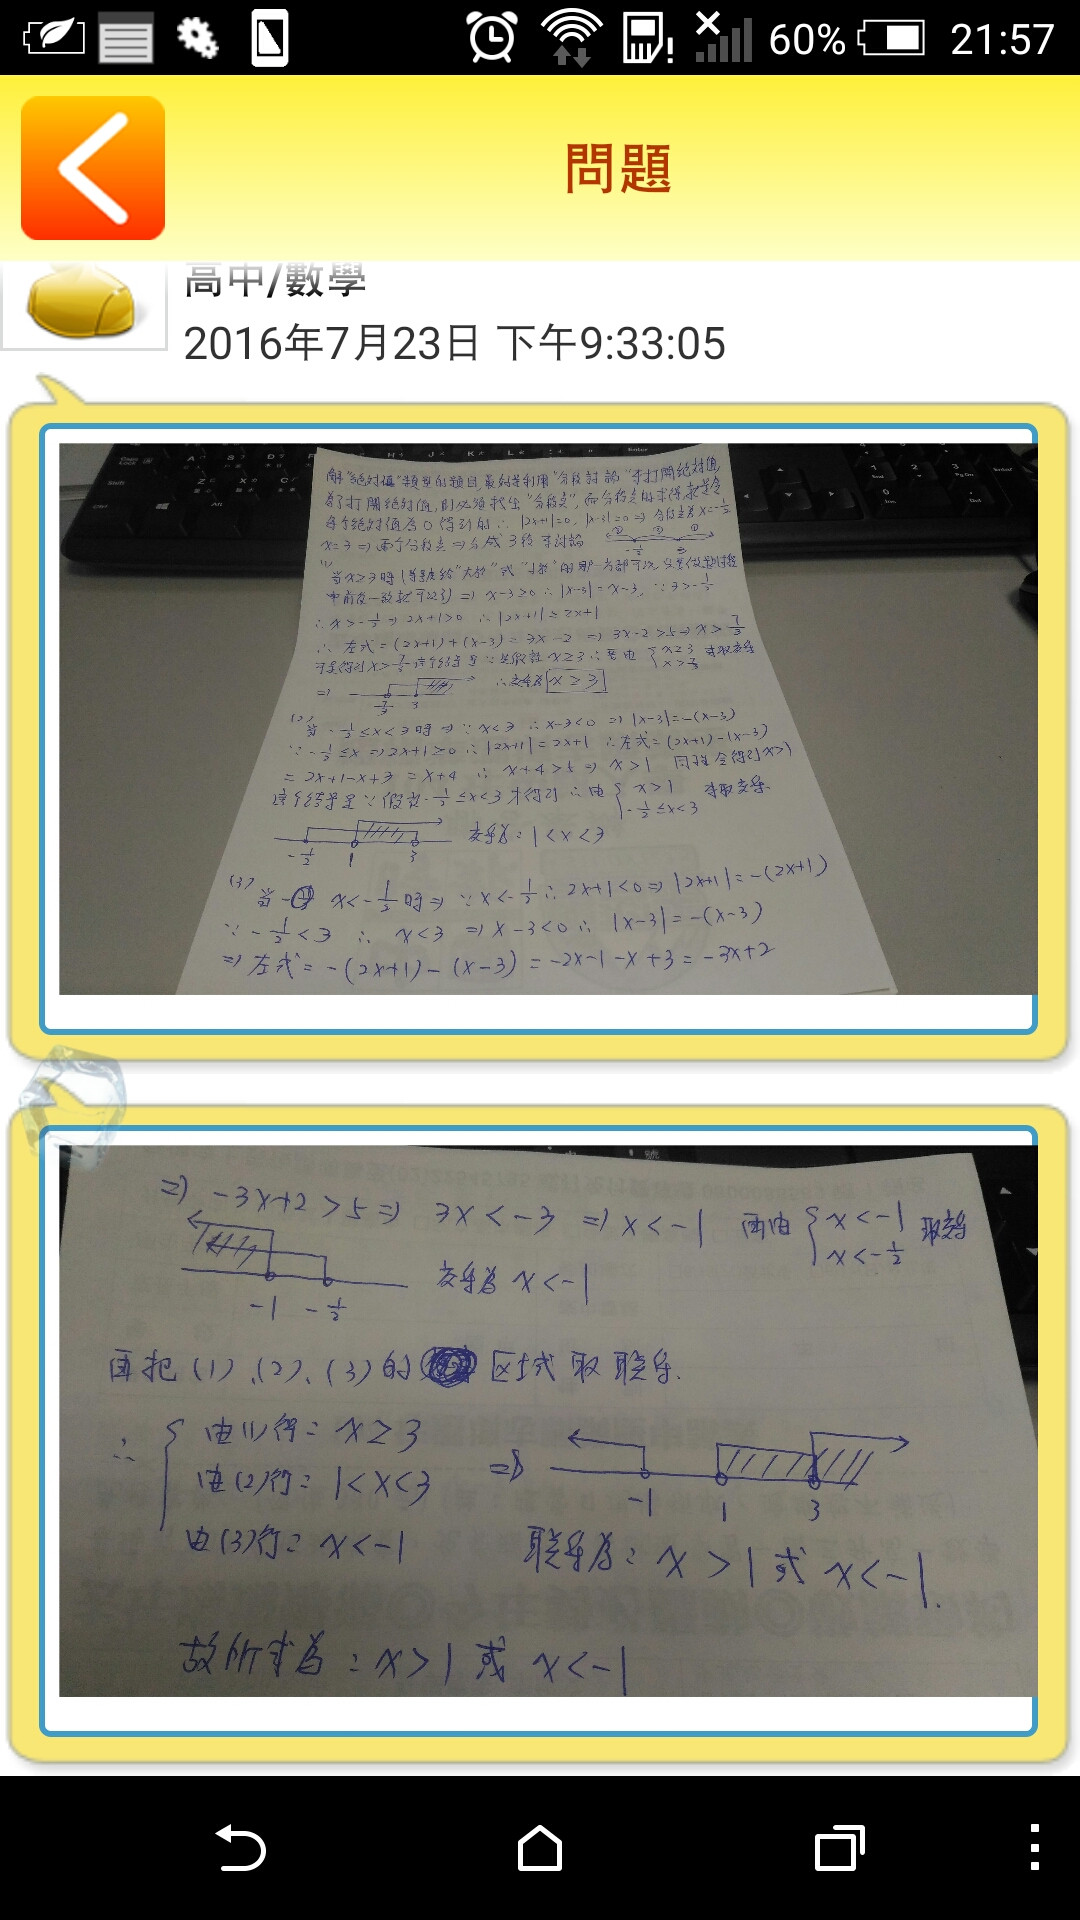 60% 21:57
問題
高中/數學
2016年7月23日 下午9:33:05
解"絕對值"類型的題目,最好是利用"分段討論"來打開絕對值,
為了打開絕對值,則必須找出"分段點",而分段點的求得就是令
每個絕對值為0得到的 ∴ |2x+1|=0, |x-3|=0 ⇒ 分段點為 x=-1/2
x=3 ⇒ 兩個分段點 ⇒ 分成3段來討論
-1/2 3
(1) 當x≥3時
⇒ x-3≥0 ∴ |x-3|=x-3, ∵ 3>-1/2
∴ x>-1/2 ⇒ 2x+1>0 ∴ |2x+1|=2x+1
∴ 左式=(2x+1)+(x-3)=3x-2 ⇒ 3x-2>5 ⇒ x>7/3
x≥3
x>7/3
⇒ 7/3 3 ∴交集為 x≥3
(2) 當 -1/2≤x<3時 ⇒ ∵ x<3 ∴ x-3<0 ⇒ |x-3|=-(x-3)
∵ -1/2≤x ⇒ 2x+1≥0 ∴ |2x+1|=2x+1 ∴左式=(2x+1)-(x-3)
=2x+1-x+3=x+4 ∴ x+4>5 ⇒ x>1 同理會得到x>1
這個結果是∵假設-1/2≤x<3才得到 ∴由 { x>1 來取交集
-1/2≤x<3
-1/2 1 3 交集為: 1<x<3
(3) 當 x<-1/2時 ⇒ ∵x<-1/2 ∴ 2x+1<0 ⇒ |2x+1|=-(2x+1)
∵ -1/2<3 ∴ x<3 ⇒ x-3<0 ∴ |x-3|=-(x-3)
⇒ 左式=-(2x+1)-(x-3)=-2x-1-x+3=-3x+2
⇒ -3x+2>5 ⇒ 3x<-3 ⇒ x<-1 再由 { x<-1 取交集
x<-1/2
交集為 x<-1
-1 -1/2
再把(1)、(2)、(3)的 区域取聯集.
∴ { 由(1)得: x≥3
由(2)得: 1<x<3 ⇒
-1 1 3
由(3)得: x<-1 聯集為: x>1 或 x<-1.
故所求為: x>1 或 x<-1